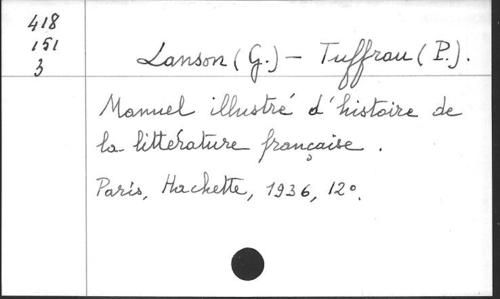 418
151
3
Lanson (G.) – Tuffrau (P.).
Manuel illustré d'histoire de
la littérature française.
Paris, Hachette, 1936, 12°.